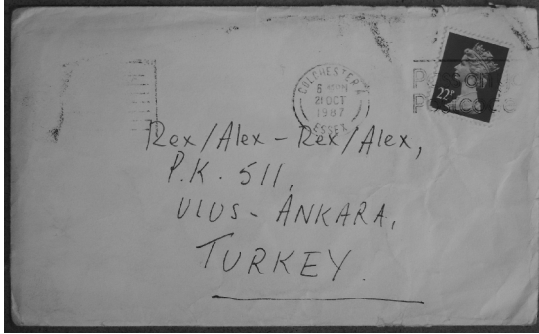 COLCHESTER
21 OCT
1987
ESSEX
22P
Rex/Alex - Rex/Alex,
P.K. 511,
ULUS - ANKARA,
TURKEY.